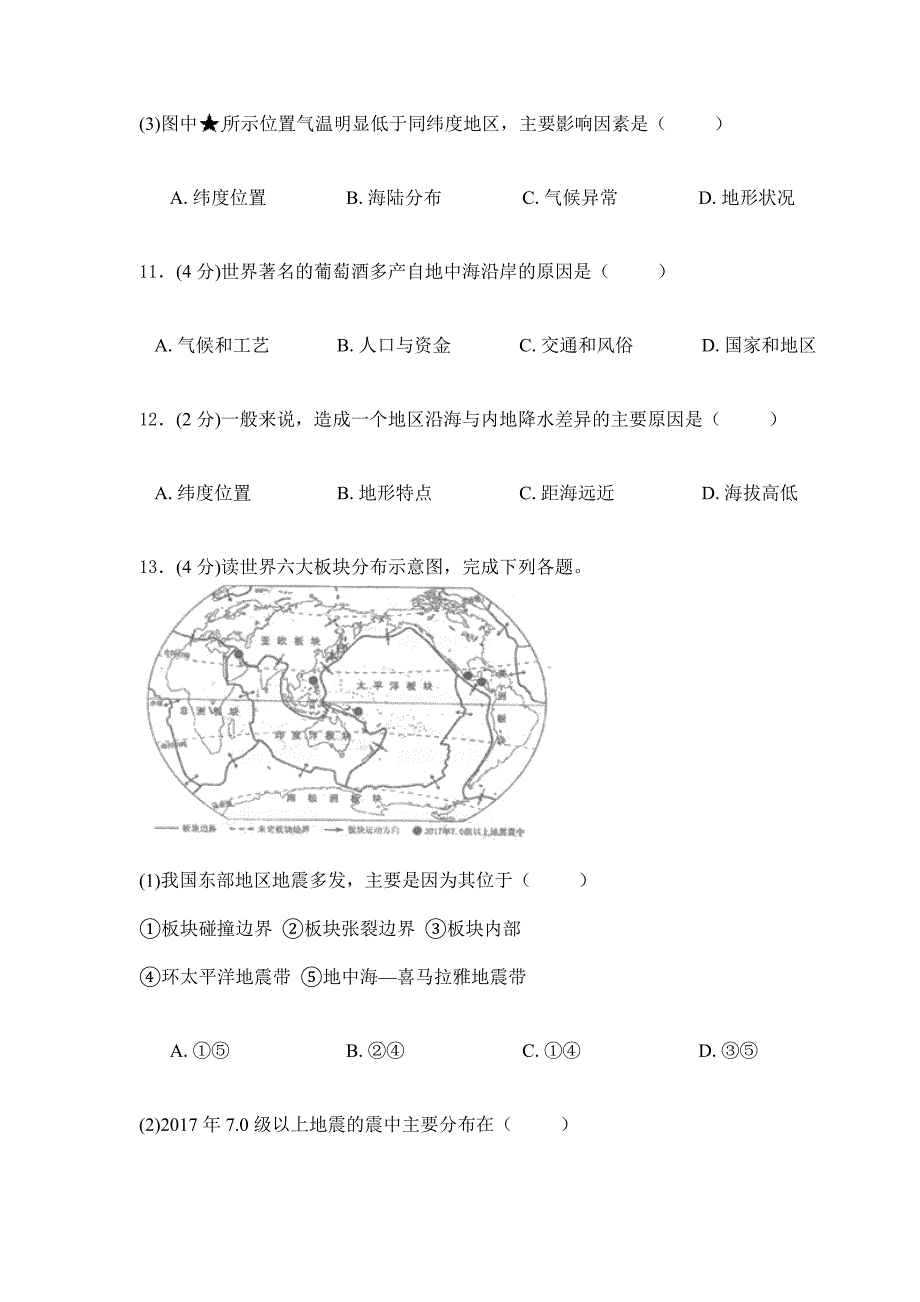 (3)图中★所示位置气温明显低于同纬度地区，主要影响因素是（　　）
A. 纬度位置 B. 海陆分布 C. 气候异常 D. 地形状况
11．(4 分)世界著名的葡萄酒多产自地中海沿岸的原因是（　　）
A. 气候和工艺 B. 人口与资金 C. 交通和风俗 D. 国家和地区
12．(2 分)一般来说，造成一个地区沿海与内地降水差异的主要原因是（　　）
A. 纬度位置 B. 地形特点 C. 距海远近 D. 海拔高低
13．(4 分)读世界六大板块分布示意图，完成下列各题。
亚欧板块
太平洋板块
美洲板块
非洲板块
印度洋板块
南极洲板块
板块边界 未定板块边界 板块运动方向 2017年7.0级以上地震震中
(1)我国东部地区地震多发，主要是因为其位于（　　）
①板块碰撞边界 ②板块张裂边界 ③板块内部
④环太平洋地震带 ⑤地中海—喜马拉雅地震带
A. ①⑤ B. ②④ C. ①④ D. ③⑤
(2)2017 年 7.0 级以上地震的震中主要分布在（　　）